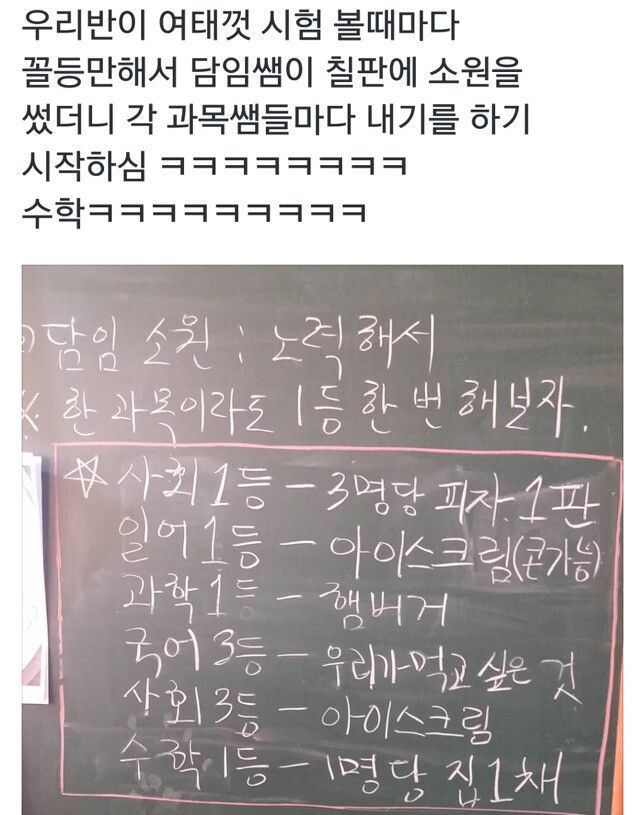 우리반이 여태껏 시험 볼때마다
꼴등만해서 담임쌤이 칠판에 소원을
썼더니 각 과목쌤들마다 내기를 하기
시작하심 ㅋㅋㅋㅋㅋㅋㅋㅋ
수학ㅋㅋㅋㅋㅋㅋㅋㅋㅋ
담임 소원 : 노력해서
※. 한 과목이라도 1등 한 번 해보자.
☆ 사회 1등 - 3명당 피자 1판
일어 1등 - 아이스크림(콘가능)
과학 1등 - 햄버거
국어 3등 - 우리가 먹고 싶은 것
사회 3등 - 아이스크림
수학 1등 - 1명당 집 1채